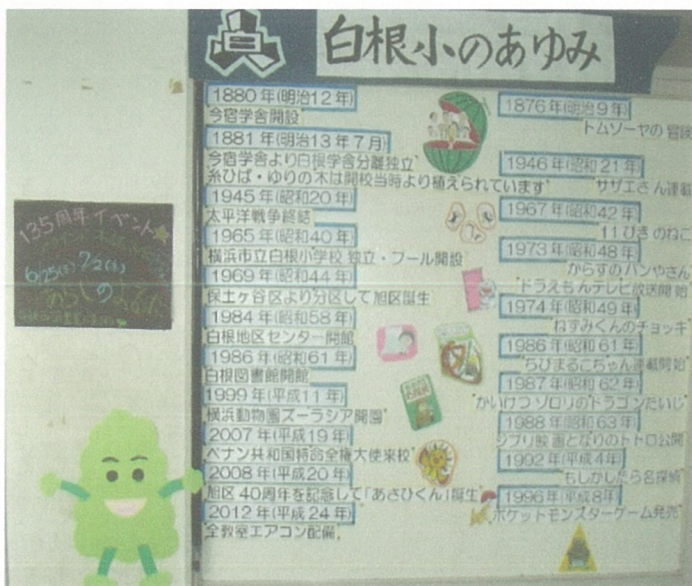 白根小のあゆみ
1880年(明治12年)
今宿学舎開設
1881年(明治13年7月)
今宿学舎より白根学舎分離独立
糸ひば・ゆりの木は開校当時より植えられています
1945年(昭和20年)
太平洋戦争終結
1965年(昭和40年)
横浜市立白根小学校 独立・プール開設
1969年(昭和44年)
保土ヶ谷区より分区して旭区誕生
1984年(昭和58年)
白根地区センター開館
1986年(昭和61年)
白根図書館開館
1999年(平成11年)
横浜動物園ズーラシア開園
2007年(平成19年)
ベナン共和国特命全権大使来校
2008年(平成20年)
旭区40周年を記念して「あさひくん」誕生
2012年(平成24年)
全教室エアコン配備
1876年(明治9年)
トムソーヤの冒険
1946年(昭和21年)
サザエさん連載
1967年(昭和42年)
11ぴきのねこ
1973年(昭和48年)
からすのパンやさん
ドラえもんテレビ放送開始
1974年(昭和49年)
ねずみくんのチョッキ
1986年(昭和61年)
ちびまるこちゃん連載開始
1987年(昭和62年)
かいけつゾロリのドラゴンたいじ
1988年(昭和63年)
ジブリ映画となりのトトロ公開
1992年(平成4年)
もしかしたら名探偵
1996年(平成8年)
ポケットモンスターゲーム発売
135周年イベント
6/25(土) 7/2(土)
の